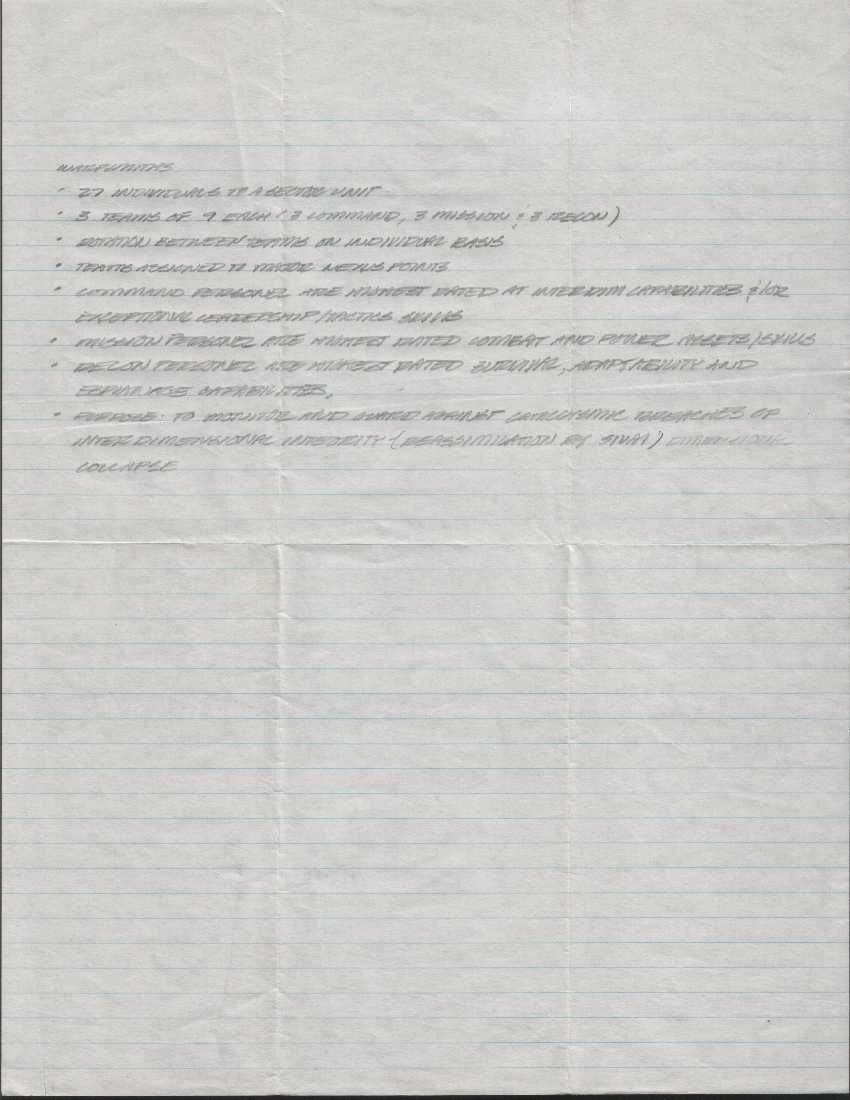 • 27 INDIVIDUALS TO A SECTOR UNIT
• 3 TEAMS OF 9 EACH (3 COMMAND, 3 MISSION & 3 RECON)
• ROTATION BETWEEN TEAMS ON INDIVIDUAL BASIS
• TEAMS ASSIGNED TO MAJOR NEXUS POINTS
• COMMAND PERSONEL ARE HIGHEST RATED AT INTERDIM CAPABILITIES &/OR
EXCEPTIONAL LEADERSHIP/TACTICS SKILLS
• MISSION PERSONEL ARE HIGHEST RATED COMBAT AND POWER ASSETS/SKILLS
• RECON PERSONEL ARE HIGHEST RATED SURVIVAL, ADAPTABILITY AND
CAPABILITIES.
• PURPOSE: TO MONITOR AND GUARD AGAINST CATACLYSMIC BREACHES OF
INTERDIMENSIONAL INTEGRITY (REASSIMILATION BY ) DIMENSIONAL
COLLAPSE